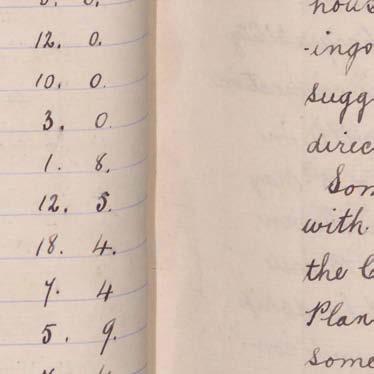 12. 0.
10. 0.
3. 0.
1. 8.
12. 5.
18. 4.
7. 4
5. 9.
hous
ingo
sugg
direc
Som
with
the C
Plan
some